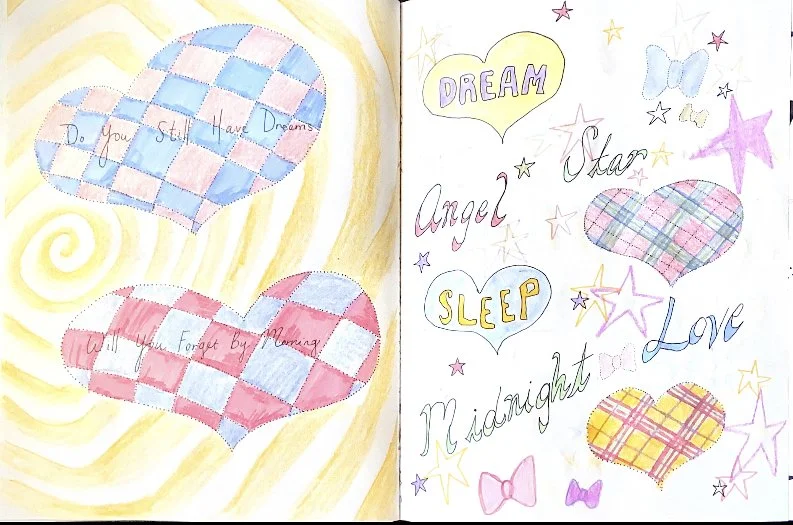 Do You Still Have Dreams
Will You Forget By Morning
DREAM
Star
Angel
SLEEP
Love
Midnight